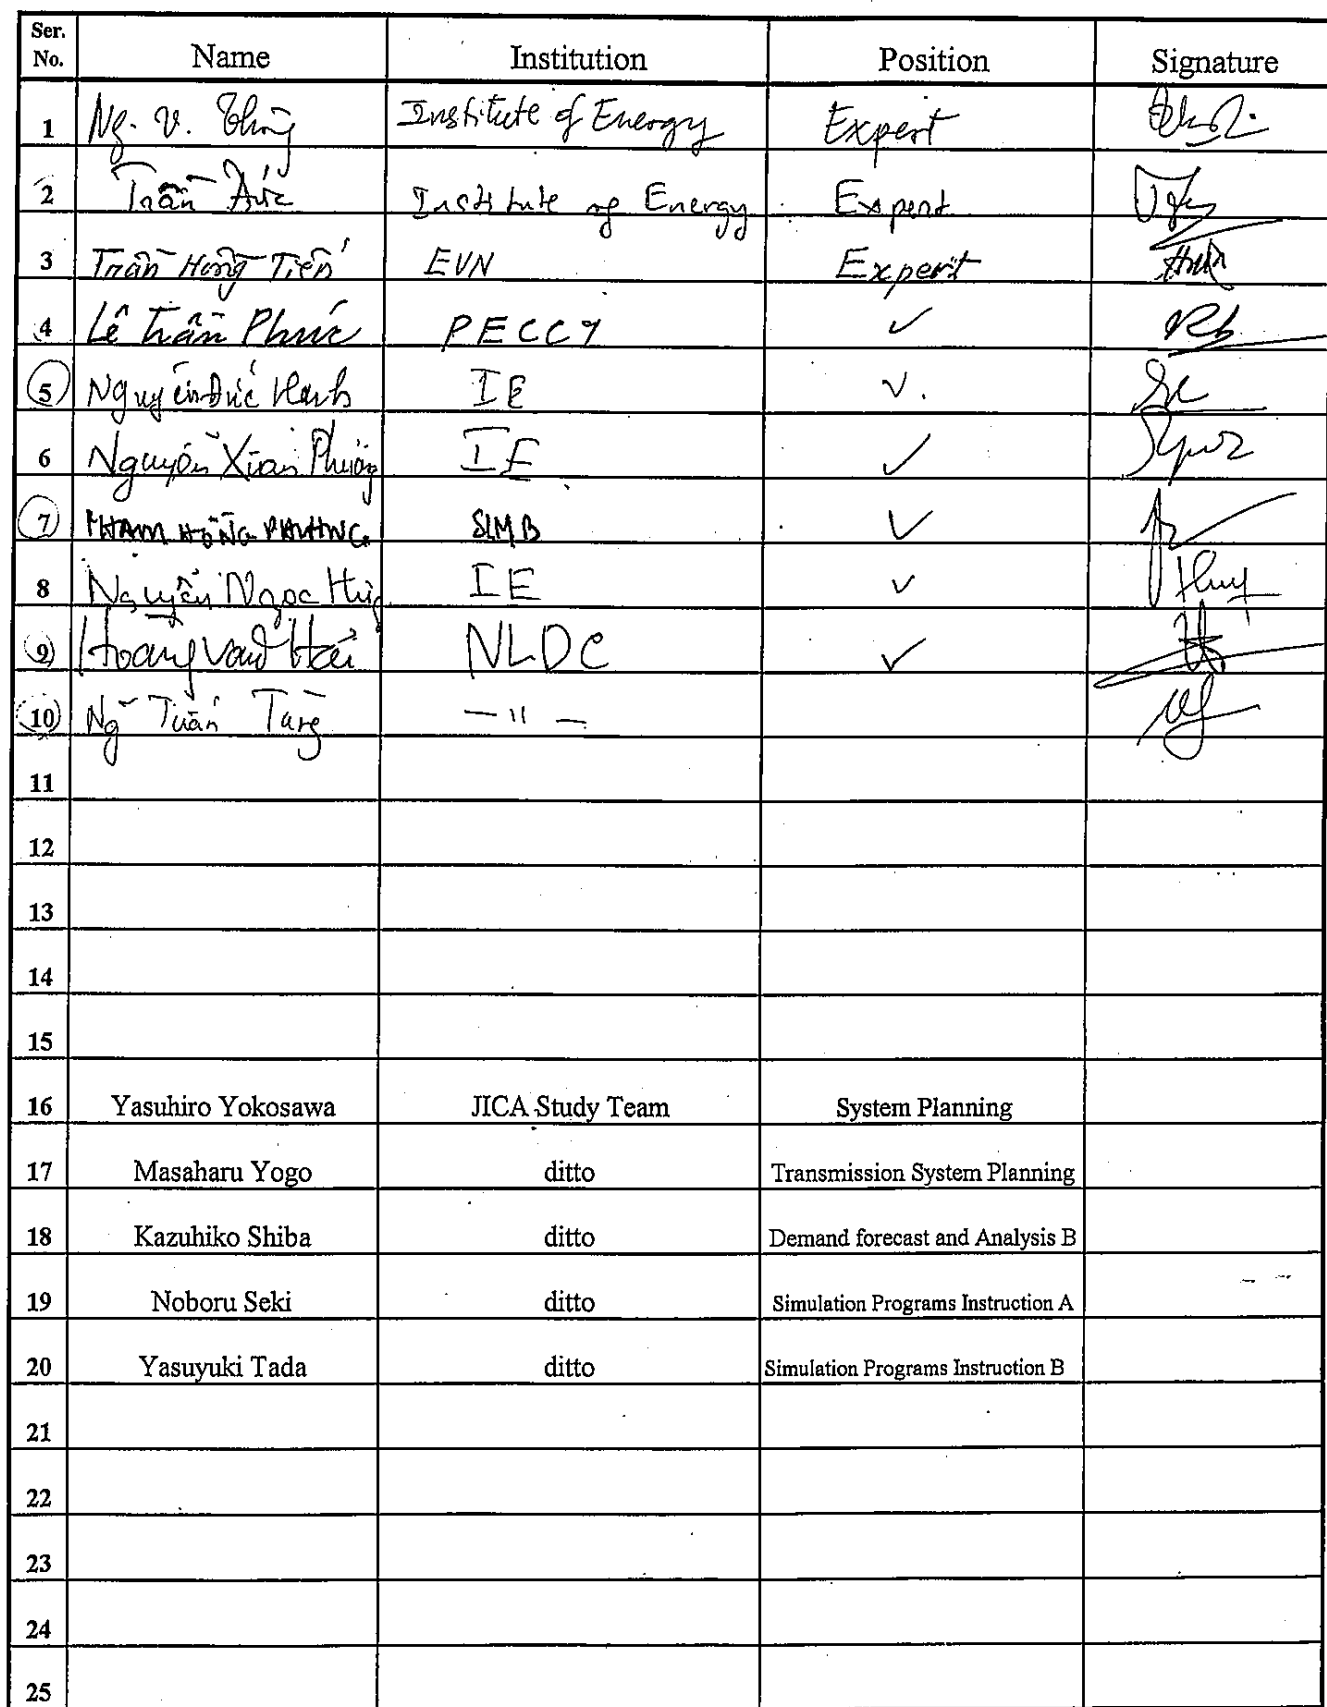 Ser. No. Name Institution Position Signature
1 Ng. V. Institute of Energy Expert
2 Trần Đức Institute of Energy Expert
3 Trần Hồng Tiến EVN Expert
4 Lê Trần Phúc PECC4 ✓
5 Nguyễn Đức IE ✓.
6 Nguyễn Xuân Phương IE ✓
7 PHẠM HỒNG ✓
8 Nguyễn Ngọc IE ✓ Huy
9 Hoàng Văn Hải NLDC ✓
10 Ng Tuấn Tùng —〃—
11
12
13
14
15
16 Yasuhiro Yokosawa JICA Study Team System Planning
17 Masaharu Yogo ditto Transmission System Planning
18 Kazuhiko Shiba ditto Demand forecast and Analysis B
19 Noboru Seki ditto Simulation Programs Instruction A
20 Yasuyuki Tada ditto Simulation Programs Instruction B
21
22
23
24
25